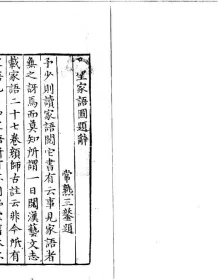 聖家語圖題辭
常熟王鏊題
予少則讀家語閱它書有云事見家語者
無之訝焉而莫知所謂一日閱漢藝文志
載家語二十七卷顏師古註云非今所有